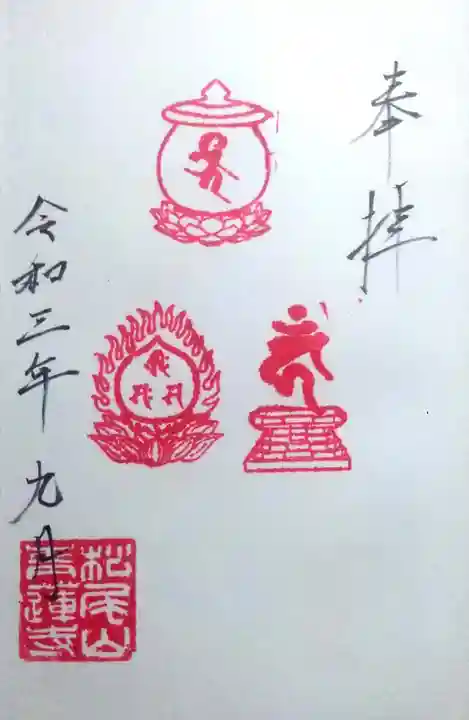 奉拝
令和三年九月
松尾山
蓮寺